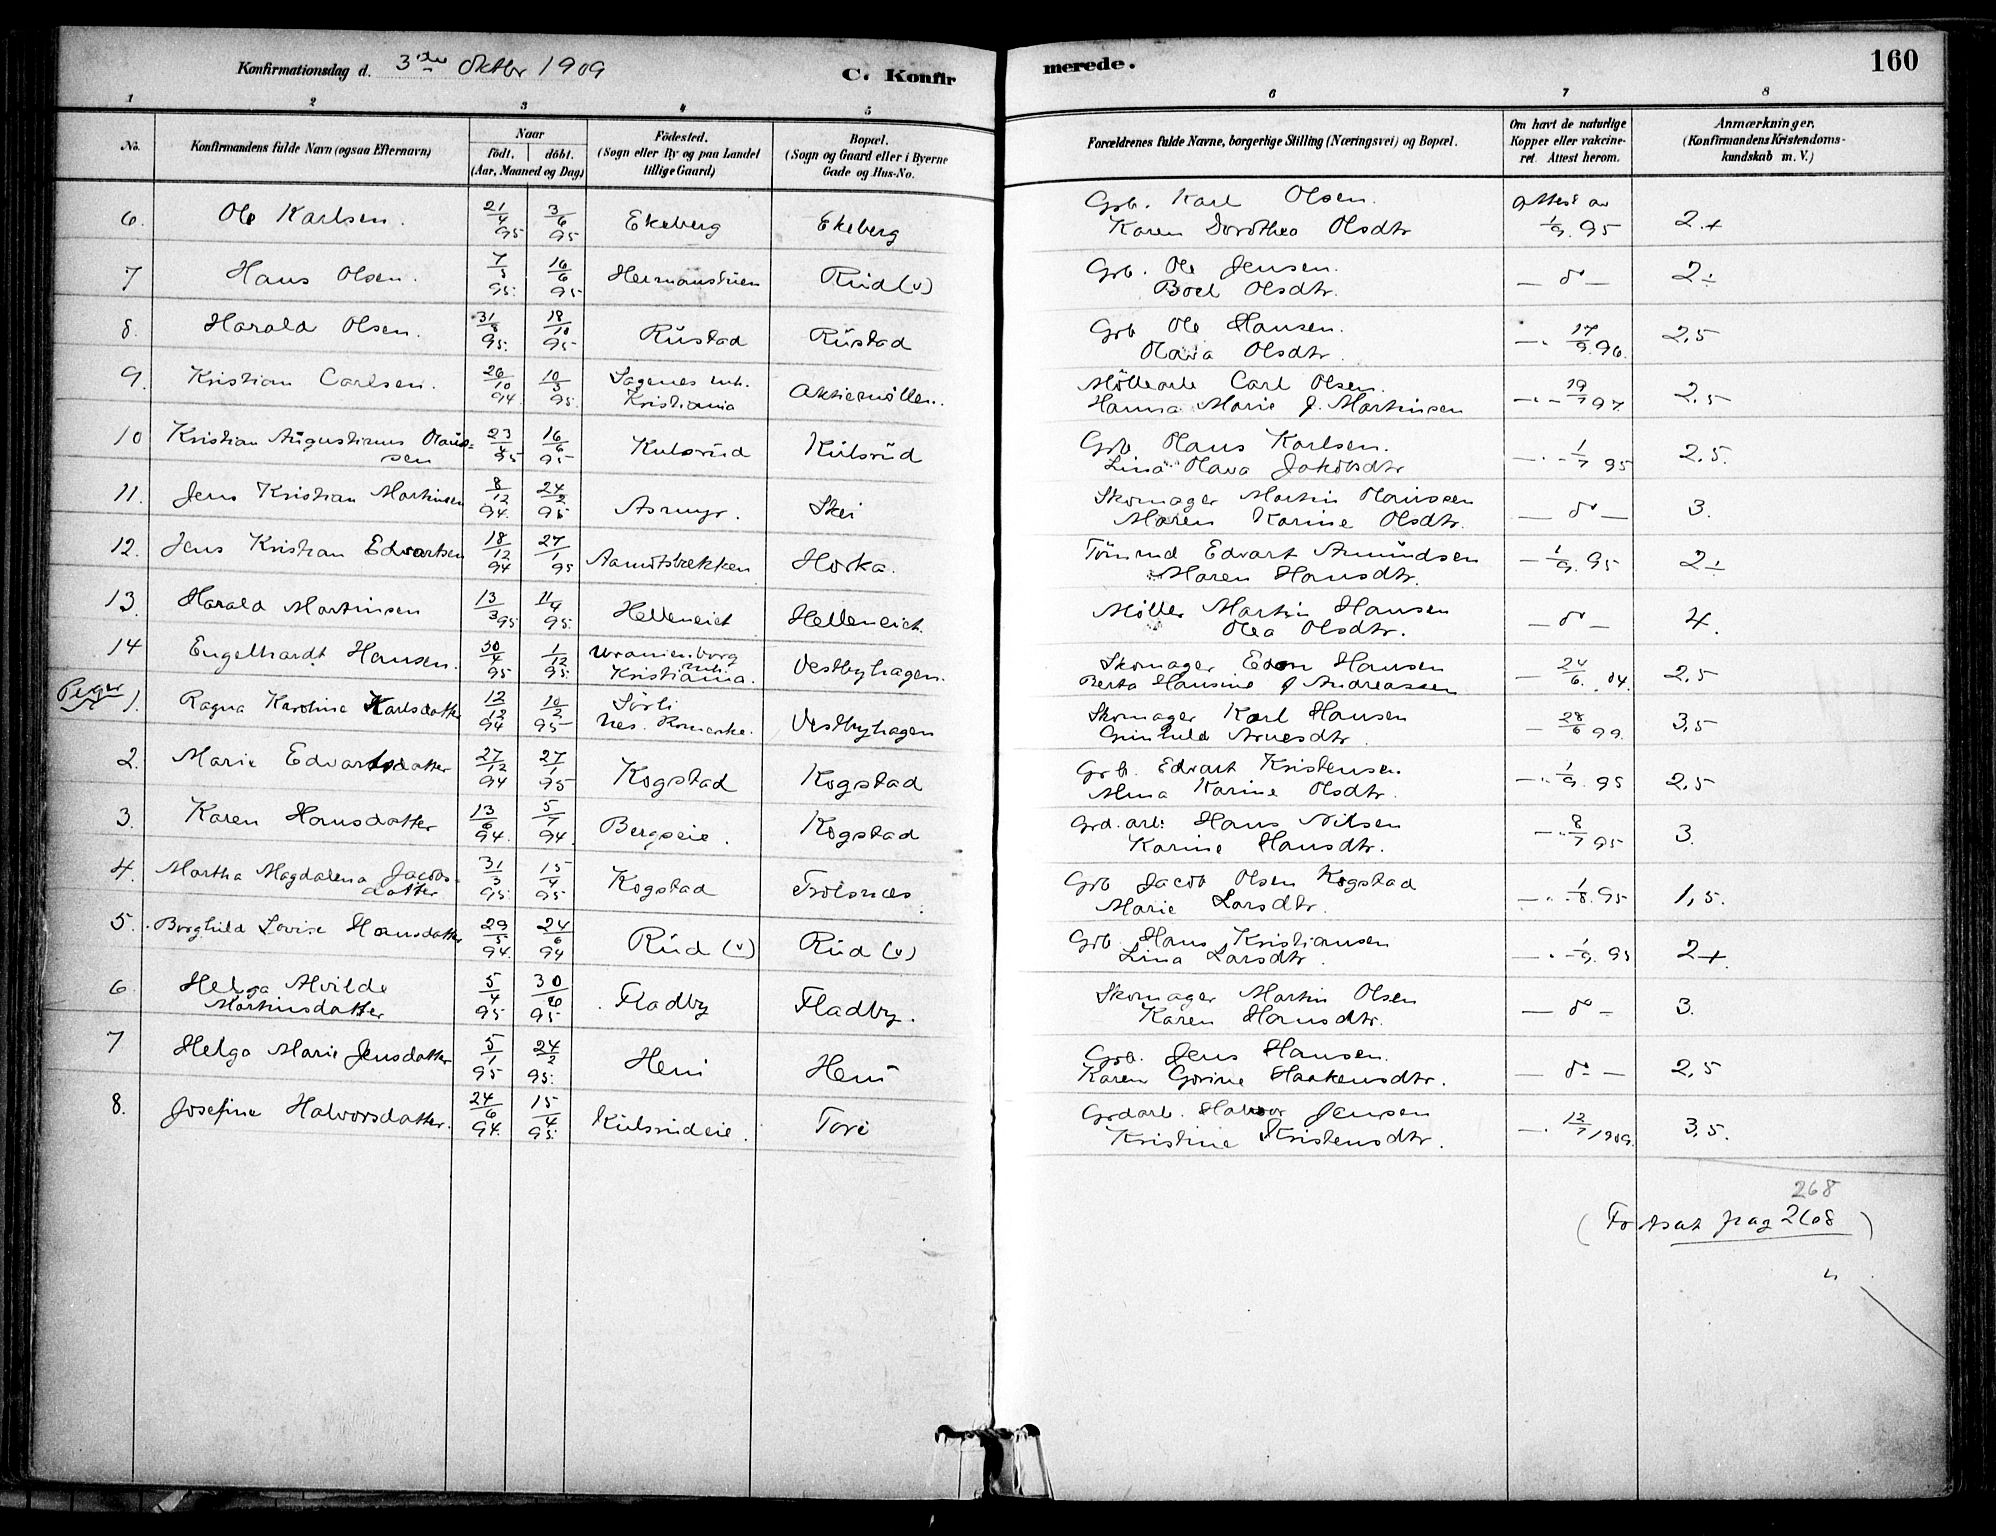 Konfirmationsdag d. 3die Oktbr 1909
C. Konfirmerede.
160
1 2 3 4 5 6 7 8
No.
Konfirmandens fulde Navn (ogsaa Efternavn)
Naar
födt. döbt.
(Aar, Maaned og Dag)
Födested.
(Sogn eller By og paa Landet
tillige Gaard)
Bopæl.
(Sogn og Gaard eller i Byerne
Gade og Hus-No.
Forældrenes fulde Navne, borgerlige Stilling (Næringsvei) og Bopæl.
Om havt de naturlige
Kopper eller vakcine-
ret. Attest herom.
Anmærkninger,
(Konfirmandens Kristendoms-
kundskab m. V.)
6. Ole Karlsen. 21/4 95 3/6 95 Ekeberg Ekeberg Grb. Karl Olsen. Attest av 1/9. 95 2+
Karen Dorothea Olsdtr
7 Hans Olsen. 7/5 95. 16/6 95 Rud (v) Grb. Ole Jensen. — do — 2÷
Boel Olsdtr.
8. Harald Olsen. 31/8 95. 18/10 95 Rustad Rustad Grb Ole Hansen. —. 17/9. 96. 2,5
Olava Olsdtr.
9. Kristian Carlsen. 26/10 94. 10/3 95. Sagenes mh. Aktiemöllen. Möllearb Carl Olsen. 19/7 97. 2,5
Kristiania Hanna Marie f. Martinsen
10 Kristian Augustinus Olaus= 23/4 95 16/6 95 Kulsrud Kulsrud Grb Olaus Karlsen. 1/7 95 2,5.
sen Lina Olava Jakobsdtr
11. Jens Kristian Martinsen 8/12 94. 24/2 95 Asmyr. Skei Skomager Martin Olaussen — do — 3.
Maren Karine Olsdtr.
12. Jens Kristian Edvartsen 18/12 94 27/1 95 Aamotsbækken Horka. Tömrmd Edvart Amundsen — 1/9. 95 2÷
Maren Hansdtr.
13. Harald Martinsen 13/3 95 11/4 95. Helleneiet Helleneiet. Möller Martin Hansen — do — 4.
Olea Olsdtr.
14 Engelhardt Hansen. 30/4 95 1/12 95. Uranienborg mh. Vestbyhagen. Skomager Edon Hansen — 24/6. 04. 2,5
Kristiania. Berta Hansine f Andreassen
Piger
1. Ragna Karoline Karlsdatter 12/12 94 10/2 95 Sörli Vestbyhagen Skomager Karl Hansen — 28/6 99. 3,5
Nes. Romerike. Gunhild Arnesdtr.
2. Marie Edvartsdatter 27/12 94 27/1 95 Kogstad Kogstad Grb. Edvart Kristensen 1/9. 95 2,5
Alma Karine Olsdtr.
3. Karen Hansdatter 13/6 94. 5/7 94. Bergseie. Kogstad Grd.arb. Hans Nilsen 8/7 95 3.
Karine Hansdtr.
4. Martha Magdalena Jacobs- 31/3 95. 15/4 95 Kogstad Trolsnæs Grb Jacob Olsen Kogstad 1/8. 95 1,5.
datter Marie Larsdtr.
5. Borghild Lovise Hansdatter 29/5 94. 24/6 94 Rud (v) Rud (v) Grb Hans Kristiansen 1/9. 95 2+.
Lina Larsdtr.
6 Helga Alvilde 5/4 95 30/6 95 Fladby Fladby. Skomager Martin Olsen — do — 3.
Martinsdatter Karen Hansdtr.
7 Helga Marie Jensdatter 5/1 95 24/2 95. Heni Heni Grb. Jens Hansen. — do — 2,5
Karen Gorine Haakensdtr.
8. Josefine Halvorsdatter. 24/6 94. 15/4 95. Kulsrudeie. Tore Grdarb. Halvor Jensen —. 12/7 1909. 3,5.
Kristine Kristensdtr.
268
(Fortsat pag 268)